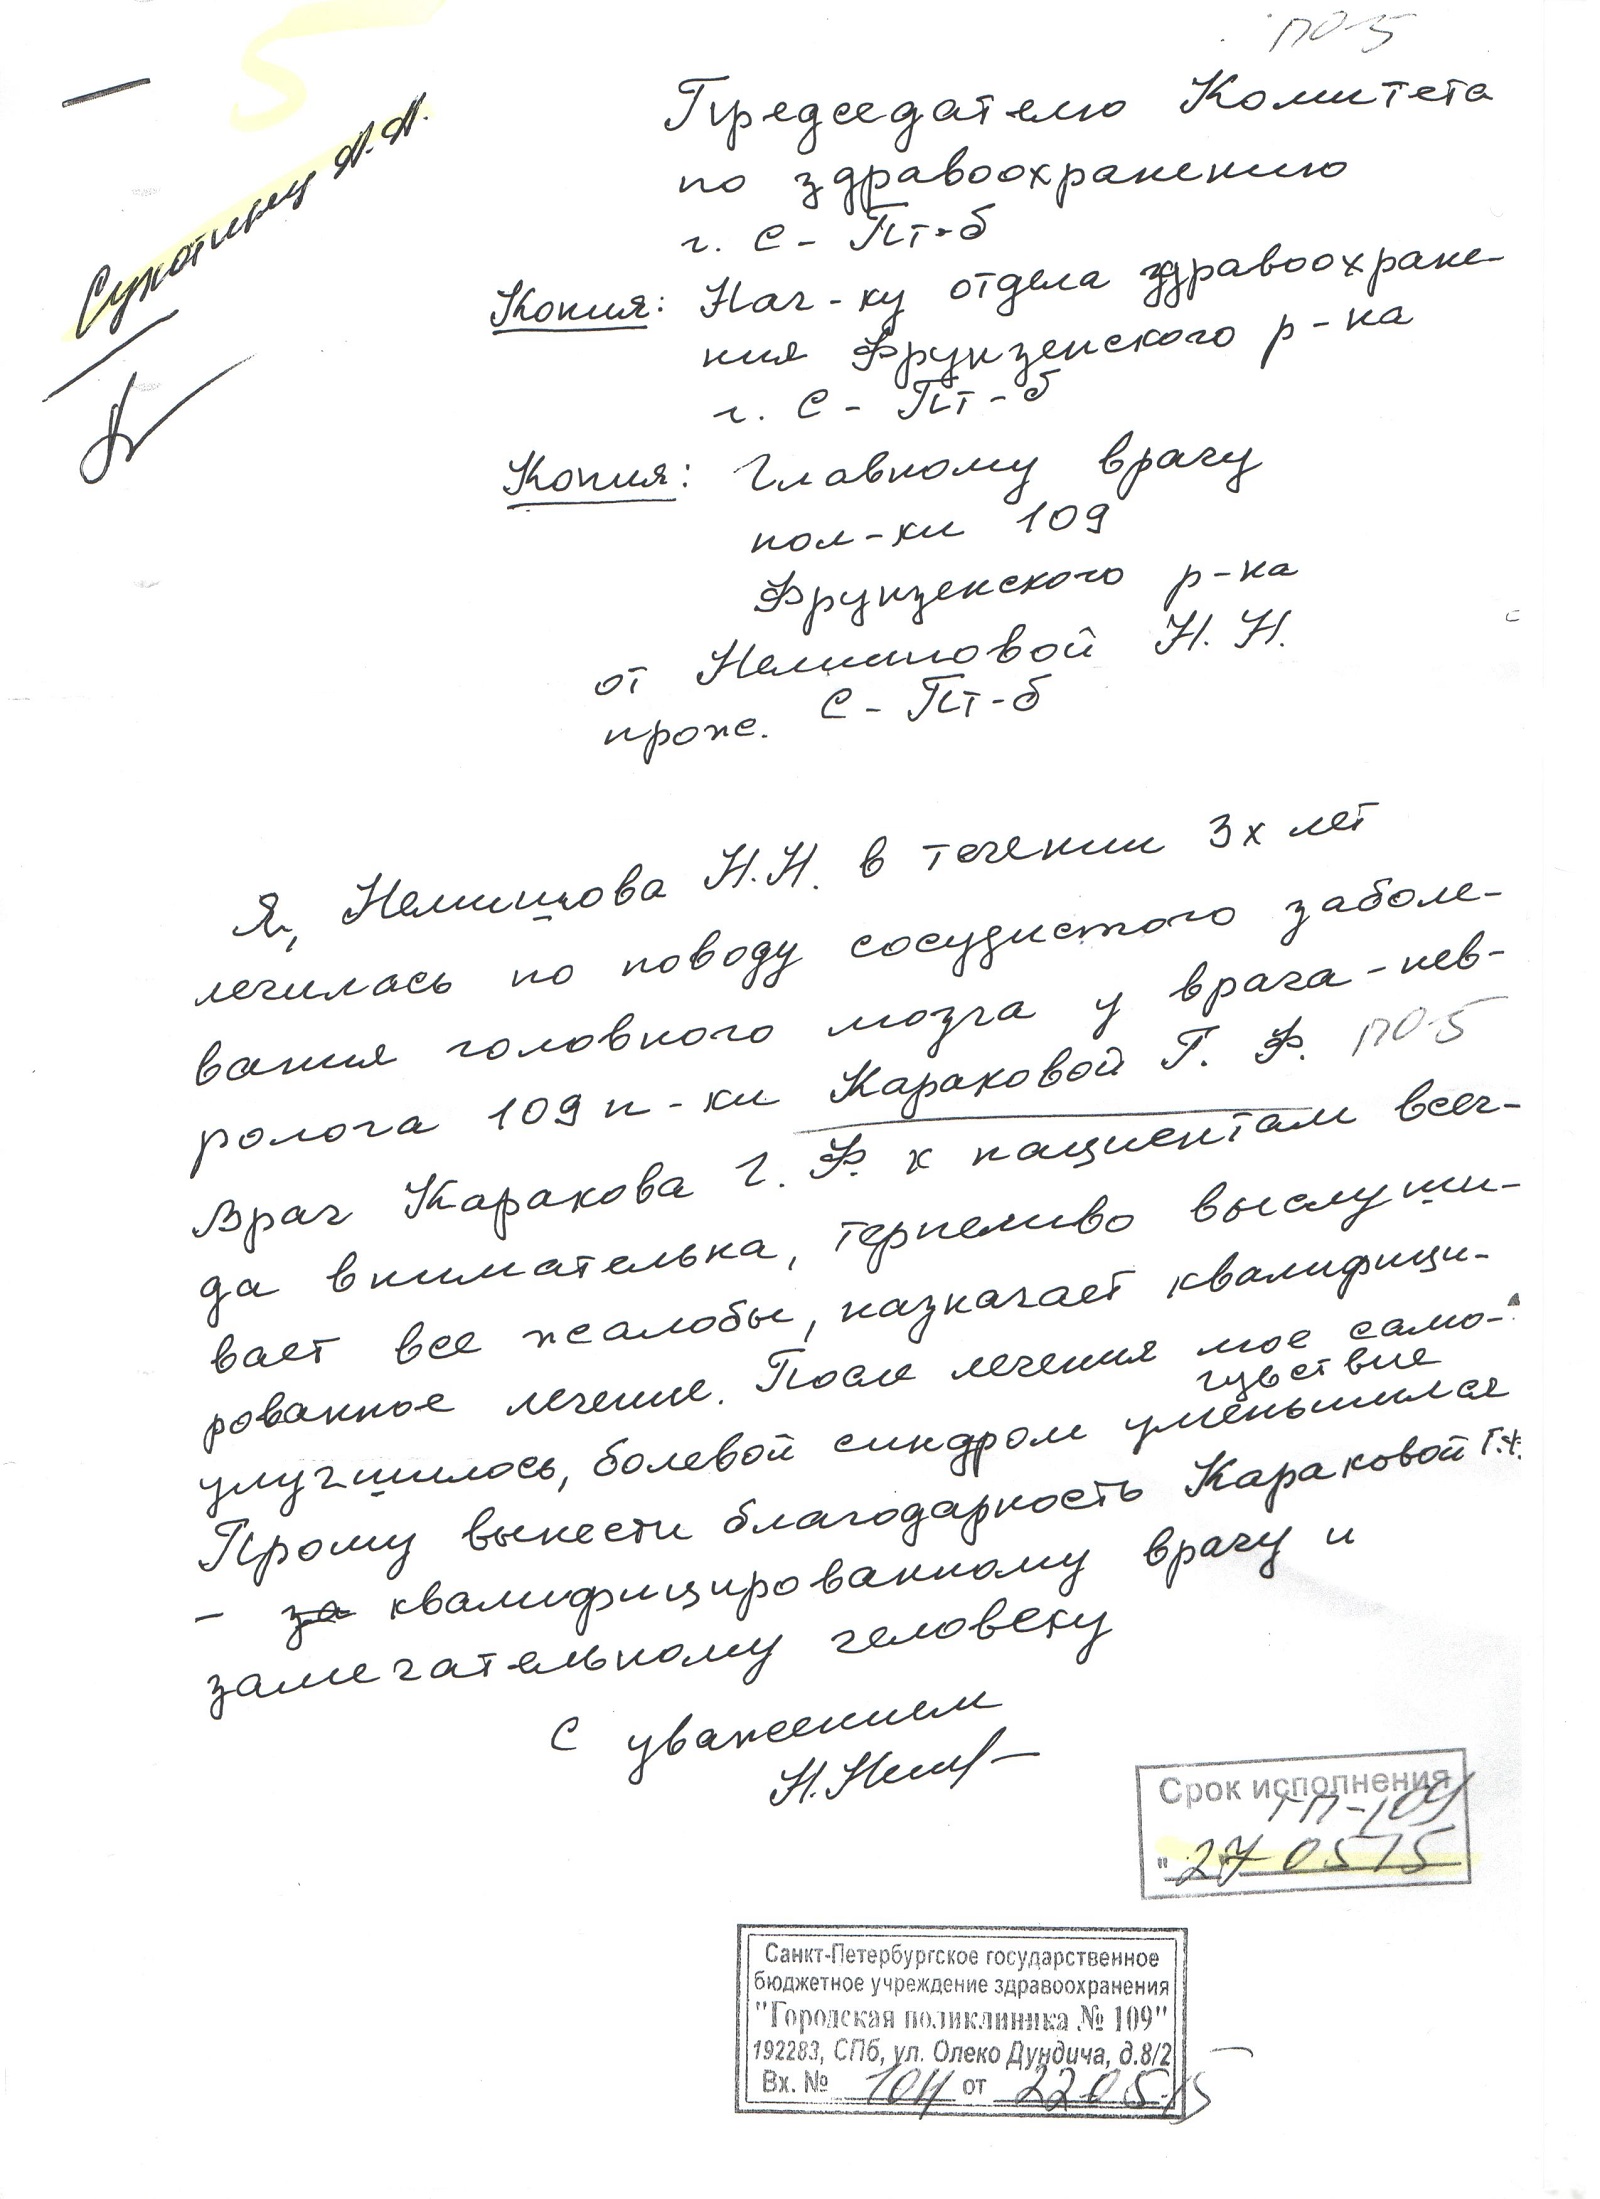 ПО-5
5
Сухотину А.А.
Председателю Комитета
по здравоохранению
г. С-Пт-б
Копия: Нач-ку отдела здравоохране-
ния Фрунзенского р-на
г. С-Пт-б
Копия: Главному врачу
пол-ки 109
Фрунзенского р-на
от Немишовой Н.Н.
прож. С-Пт-б
Я, Немишова Н.Н. в течении 3х лет
лечилась по поводу сосудистого заболе-
вания головного мозга у врача-нев-
ролога 109 п-ки Караковой Г. Ф. ПО-5
Врач Каракова Г. Ф. к пациентам всег-
да внимательна, терпеливо выслуши-
вает все жалобы, назначает квалифици-
рованное лечение. После лечения мое само-
чувствие
улучшилось, болевой синдром уменьшился
Прошу вынести благодарность Караковой Г.Ф.
- за квалифицированному врачу и
замечательному человеку
С уважением
Срок исполнения
ГП-109
"27" 05 15
Санкт-Петербургское государственное
бюджетное учреждение здравоохранения
"Городская поликлиника № 109"
192283, СПб, ул. Олеко Дундича, д.8/2
Вх. № от 22 05 15